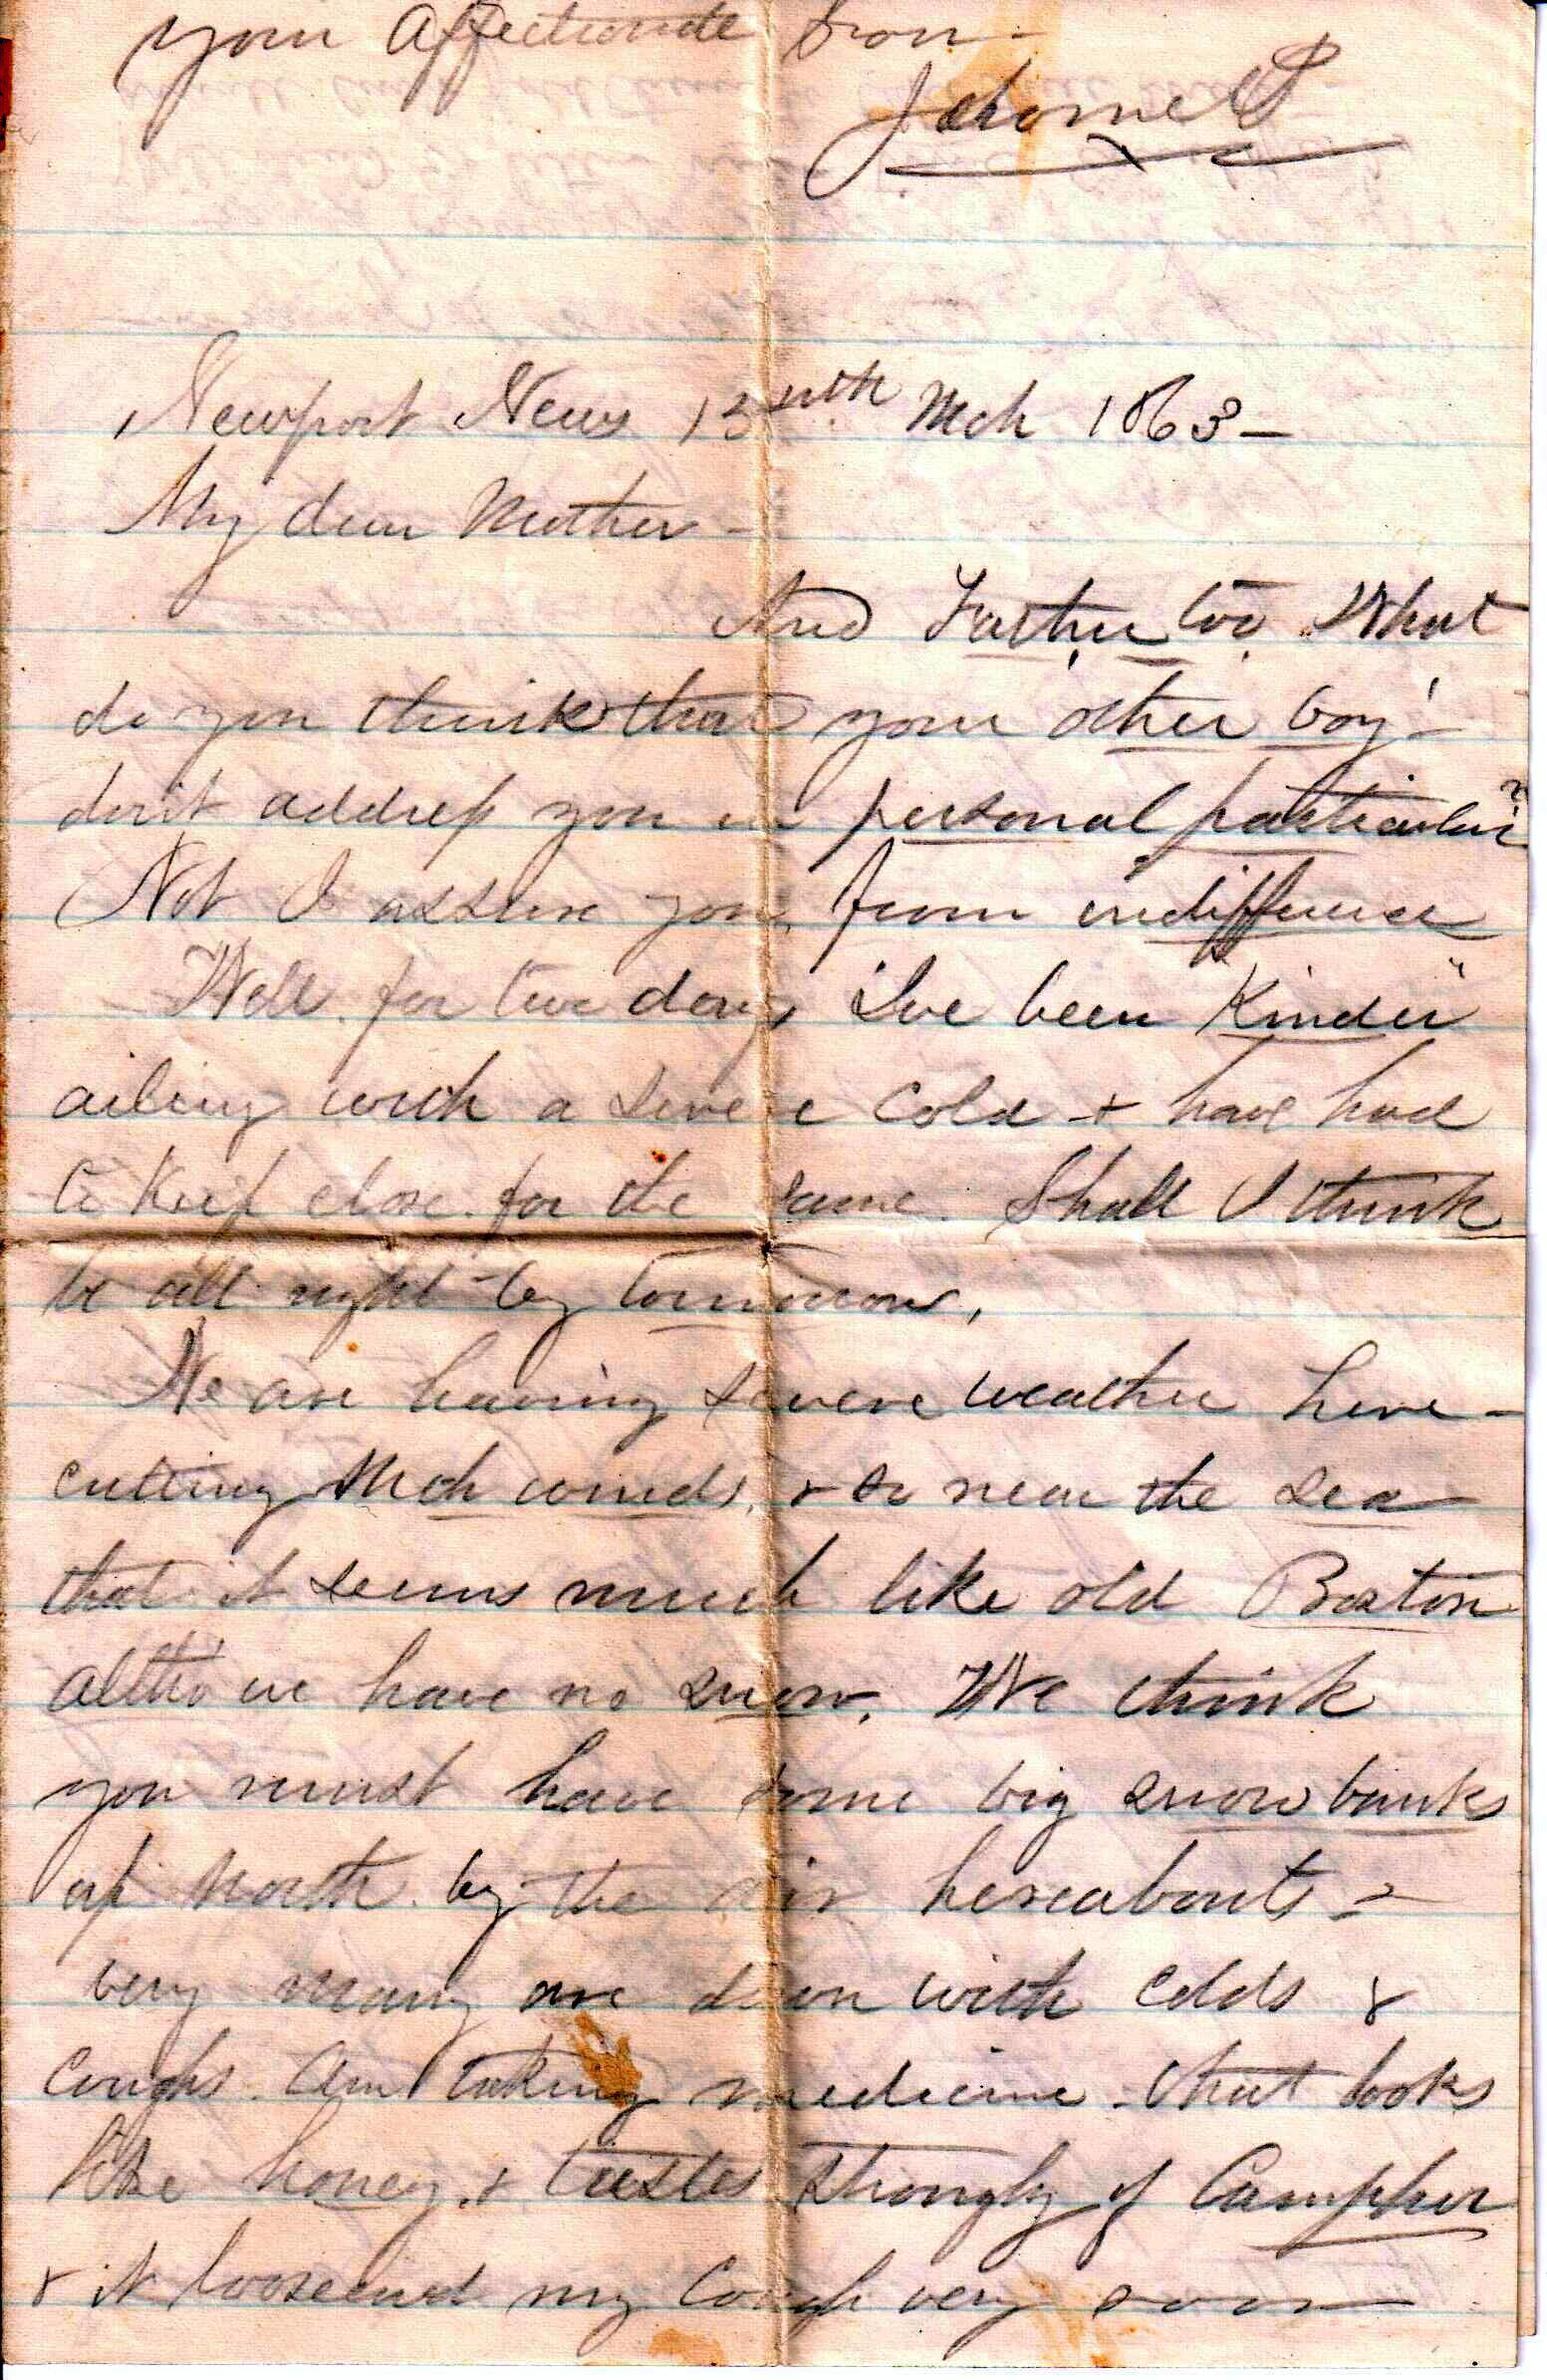 your affectionate Son -
Jerome P
Newport News 13nth Mch 1863 -
My dear Mother -
And Father too. What
do you think that your other boy' -
don't address you in personal particular?
Not I assure you, from indifference
Well. for two days I've been "Kinder"
ailing with a severe cold + have had
to keep close. for the same. Shall I think
be all right by tomorrow.
We are having severe weather here -
cutting Mch winds. + so near the sea
that it seems much like old Boston
altho' we have no snow. We think
you must have some big snow banks
up North. by the air hereabouts -
very many are down with colds +
Coughs. Am taking medicine - that looks
like honey. + tastes strongly of Campher
+ it loosened my Cough very soon